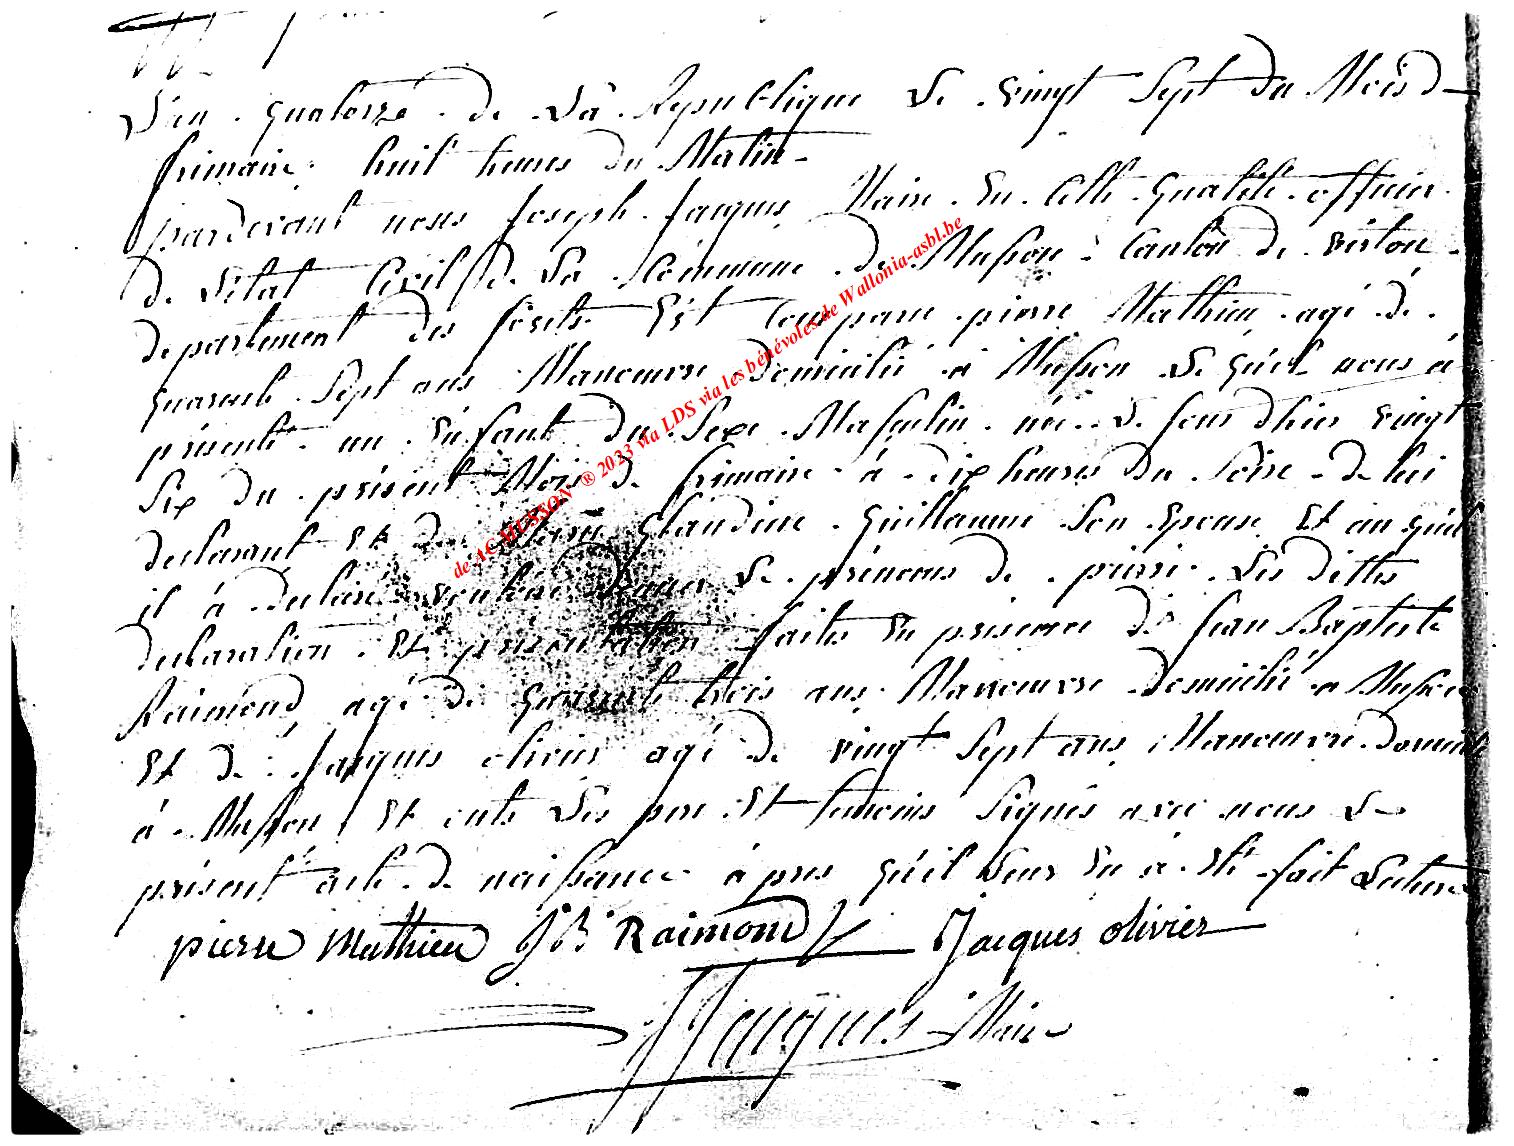 L'an quatorze de La Republique Le vingt Sept du Mois d
frimaire huit heures du Matin
pardevant nous Joseph Jacques Maire En Cette qualité officier
de L'état Civil de La Commune de Musson Canton de virton
departement des forêts Est Comparu pierre Mathieu agé de
quarante Sept ans Manoeuvre domicilié a Musson Le quel nous à
présenté un Enfant du Sexe Masculin née Le jour d'hier vingt
Six du présent Mois de frimaire à dix heures du Soire de lui
declarant Et de Claudine Guillaume Son Epouse Et au quel
il à declaré vouloir donner Le prénoms de pierre Les dittes
declaration Et présentation faites En présence de Jean Baptiste
Raimond agé de quarante trois ans Manoeuvre domicilié a Musson
Et de Jacques olivier agé de vingt Sept ans Manoeuvre domicilié
à Musson Et onts Les pere Et temoins Signés avec nous Le
présent acte de naissance après qu'il Leur En à Eté fait Lecture
pierre Mathieu JB Raimond Jacques olivier
JJacques Maire
de AC MUSSON ® 2023 via LDS via les bénévoles de Wallonia-asbl.be